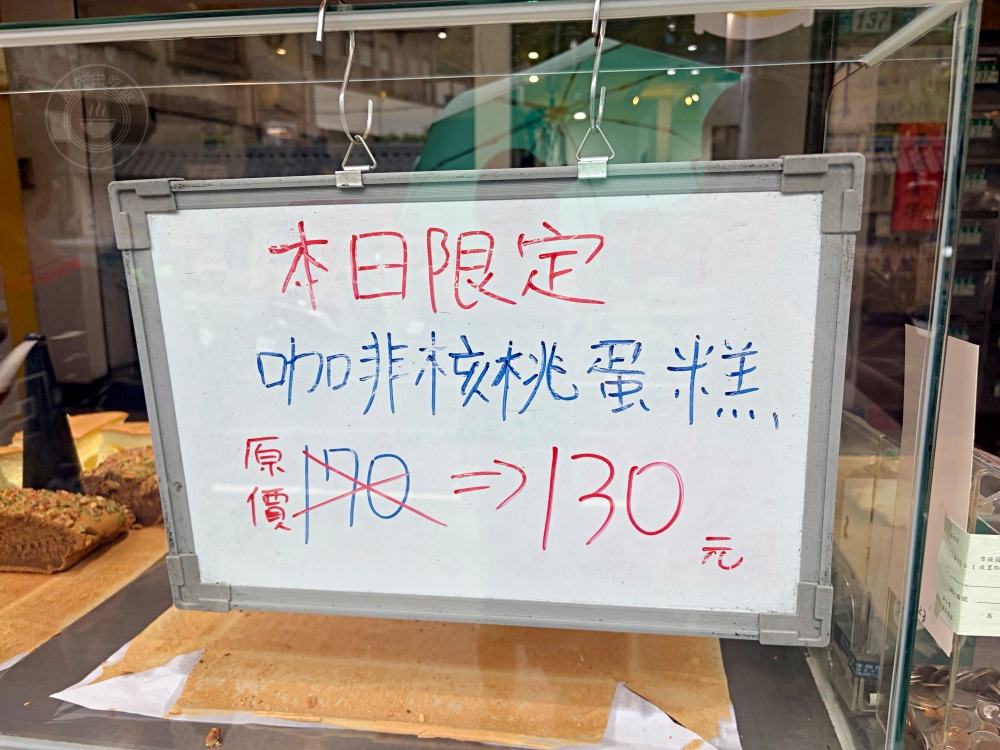 137
本日限定
咖非核桃蛋糕
原價 170 => 130 元